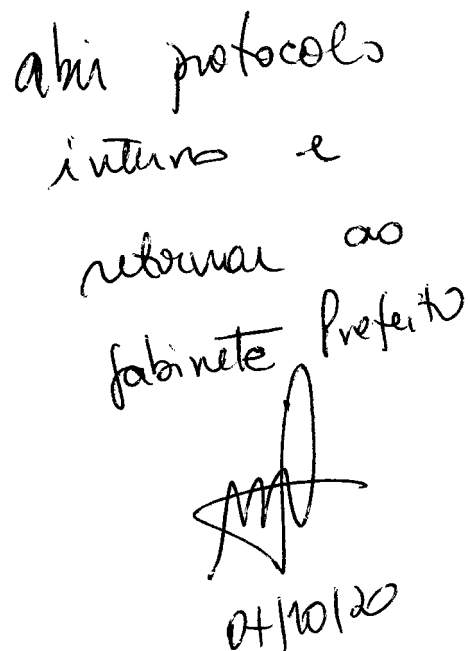 abrir protocolo
interno e
retornar ao
Gabinete Prefeito
07/10/20